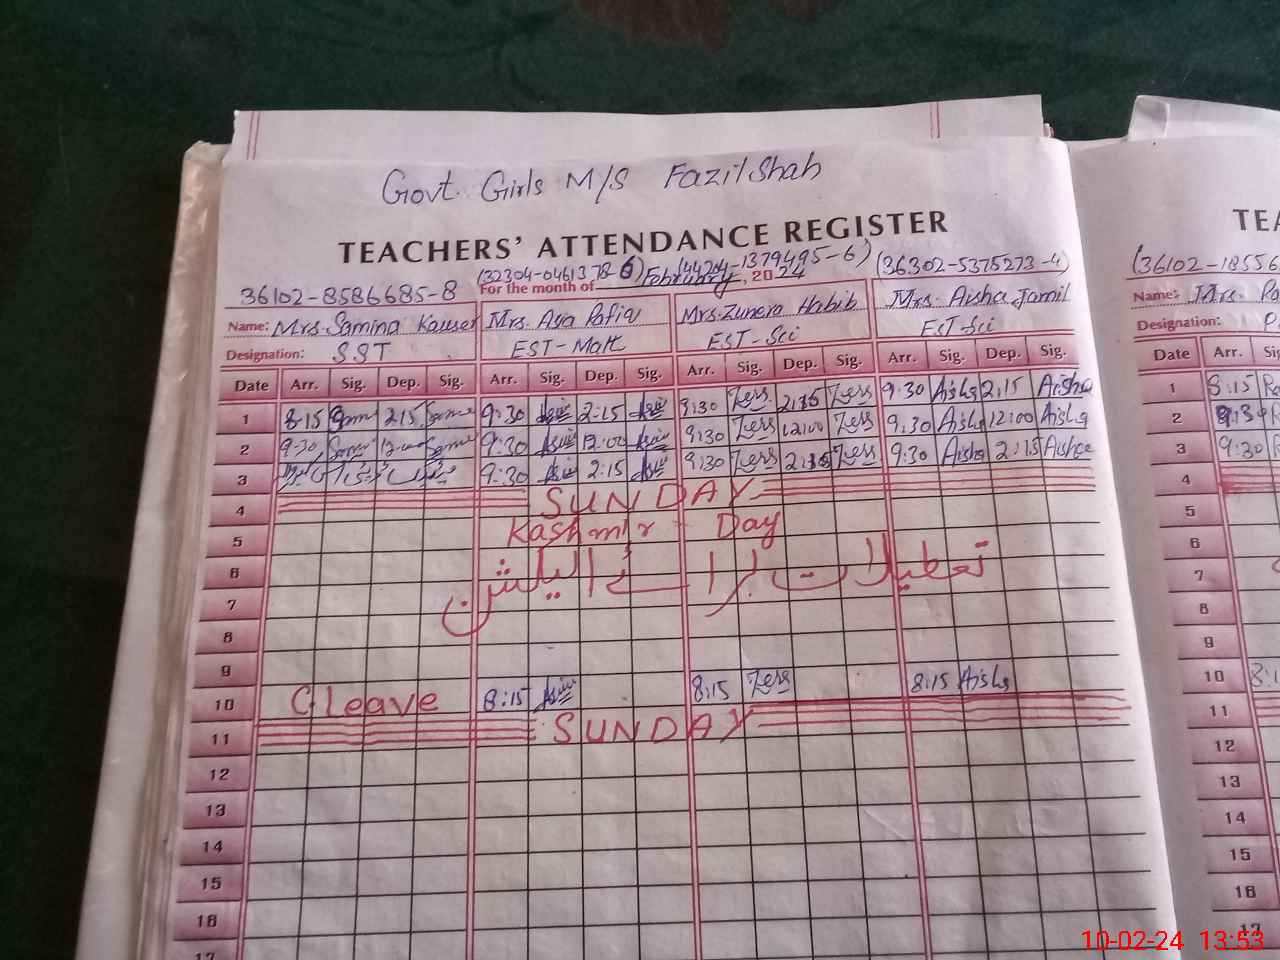 Govt. Girls M/S Fazilshah
TEACHERS' ATTENDANCE REGISTER TEA
36102-8586685-8 (32304-0461378-6) (44204-1379495-6) (36302-5375273-4) (36102-1855
For the month of February, 2024
Name: Mrs. Samina Kauser Mrs. Asa Rafiq Mrs. Zunera Habib Mrs. Aisha Jamil Name: Mrs.
Designation: SST EST-Math EST-Sci EST-Sci Designation:
Date Arr. Sig. Dep. Sig. Arr. Sig. Dep. Sig. Arr. Sig. Dep. Sig. Arr. Sig. Dep. Sig. Date Arr.
1 8-15 2:15 9:30 2:15 9:30 2:15 9:30 Aisha 2:15 Aisha 1 8:15
2 9-30 12:00 9:30 12:00 9:30 12:00 9:30 Aisha 12:00 Aisha 2 9:30
3 9:30 2:15 9:30 2:15 9:30 Aisha 2:15 Aisha 3 9:30
4 SUNDAY 4
5 Kashmir Day 5
6 تعطیلات برائے الیکشن 6
7 7
8 8
9 9
10 C Leave 8:15 8:15 8:15 Aisha 10
11 SUNDAY 11
12 12
13 13
14 14
15 15
16 16
17 17
10-02-24 13:53